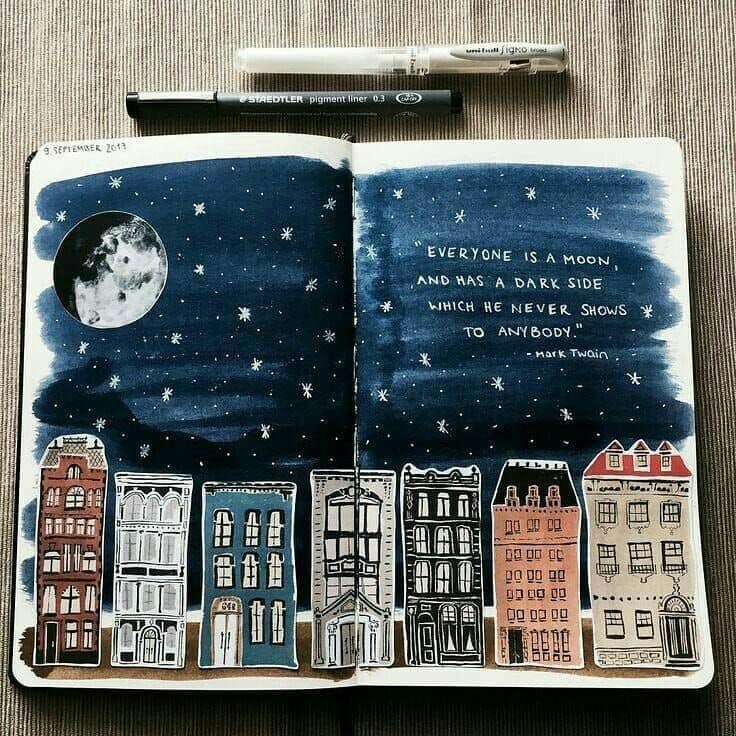 uni-ball Signo broad
STAEDTLER pigment liner 0.3
9. SEPTEMBER 2017
"EVERYONE IS A MOON,
AND HAS A DARK SIDE
WHICH HE NEVER SHOWS
TO ANYBODY."
- Mark Twain